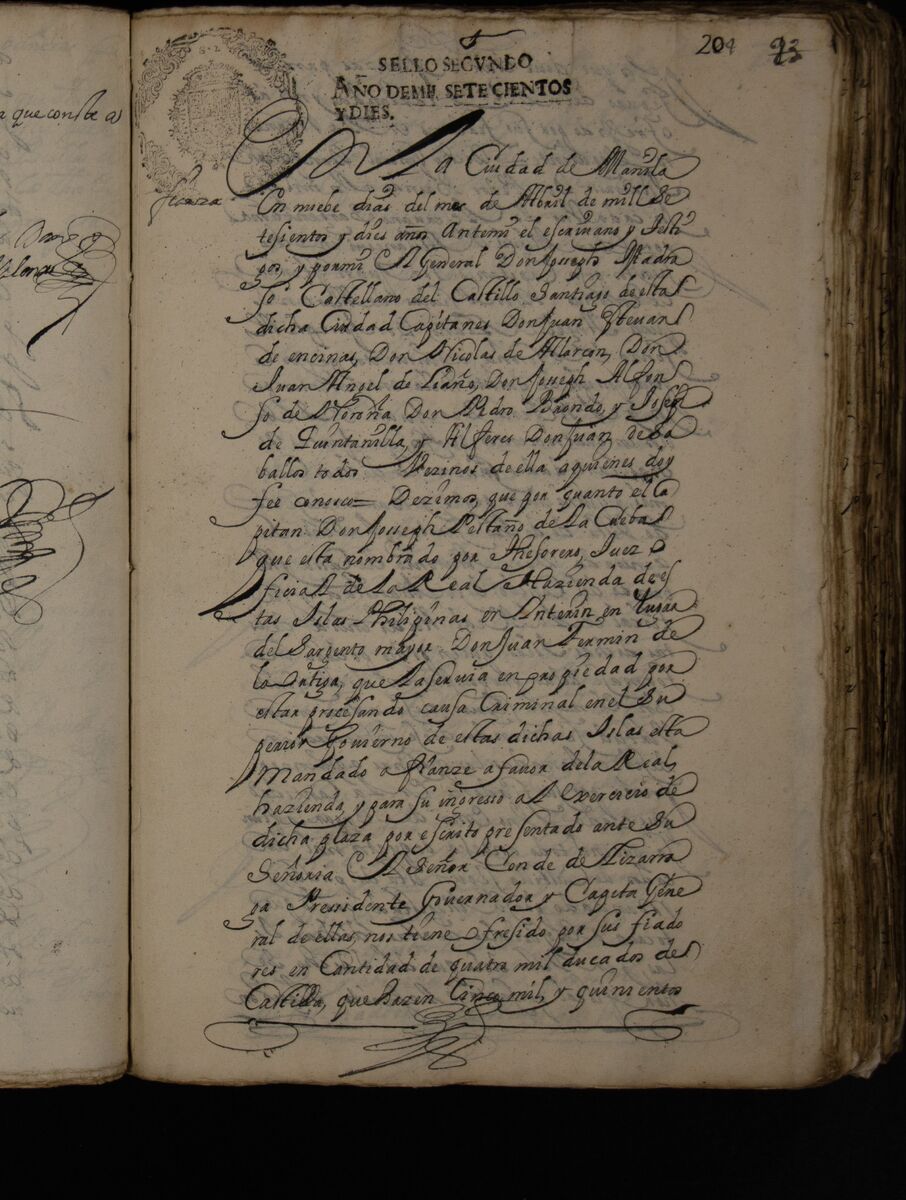 a que conste a
204 93
SELLO SEGVNDO
AÑO DE MIL SETECIENTOS
Y DIES.
fianza
En la Ciudad de Manila
En nuebe dias del mes de Abril de mill Se
tesientos y dies años Antemi el escrivano y testi
gos, y por mi El General Don Joseph Madra
so Castellano del Castillo Santiago de esta
dicha Ciudad Capitanes Don Juan Estevan
de encinas, Don Nicolas de Allarcon, Don
Juan Angel de Liaño, Don Joseph Alfon
so de Noroña Don Pedro Baondo, y Joseph
de Quintanilla, y Alferes Don Juan de Sa
ballos todos Vezinos de ella a quienes doy
fee conosco= Dezimos, que por quanto el Ca
pitan Don Joseph Pestaño de La Cueba
que esta nombrado por Thesorero, Juez o
ficial de La Real Hazienda de es
tas Islas Philipinas en Interin en lugar
del Sargento mayor Don Juan Fermin de
la Ortiga, que La servia en propiedad por
estar procesando causa Criminal en el Su
perior Govierno de estas dichas Islas esta
Mandado afianze a favor de la Real
hazienda, y para su ingresso al Exercicio de
dicha plaza por escrito presentado ante Su
Señoria El Señor Conde de Lizarra
ga Pressidente Governador y Capita Gene
ral de ellas, nos tiene ofresido por sus fiado
res en Cantidad de quatro mil ducados de
Castilla, que hazen Cinco mil, y quinientos